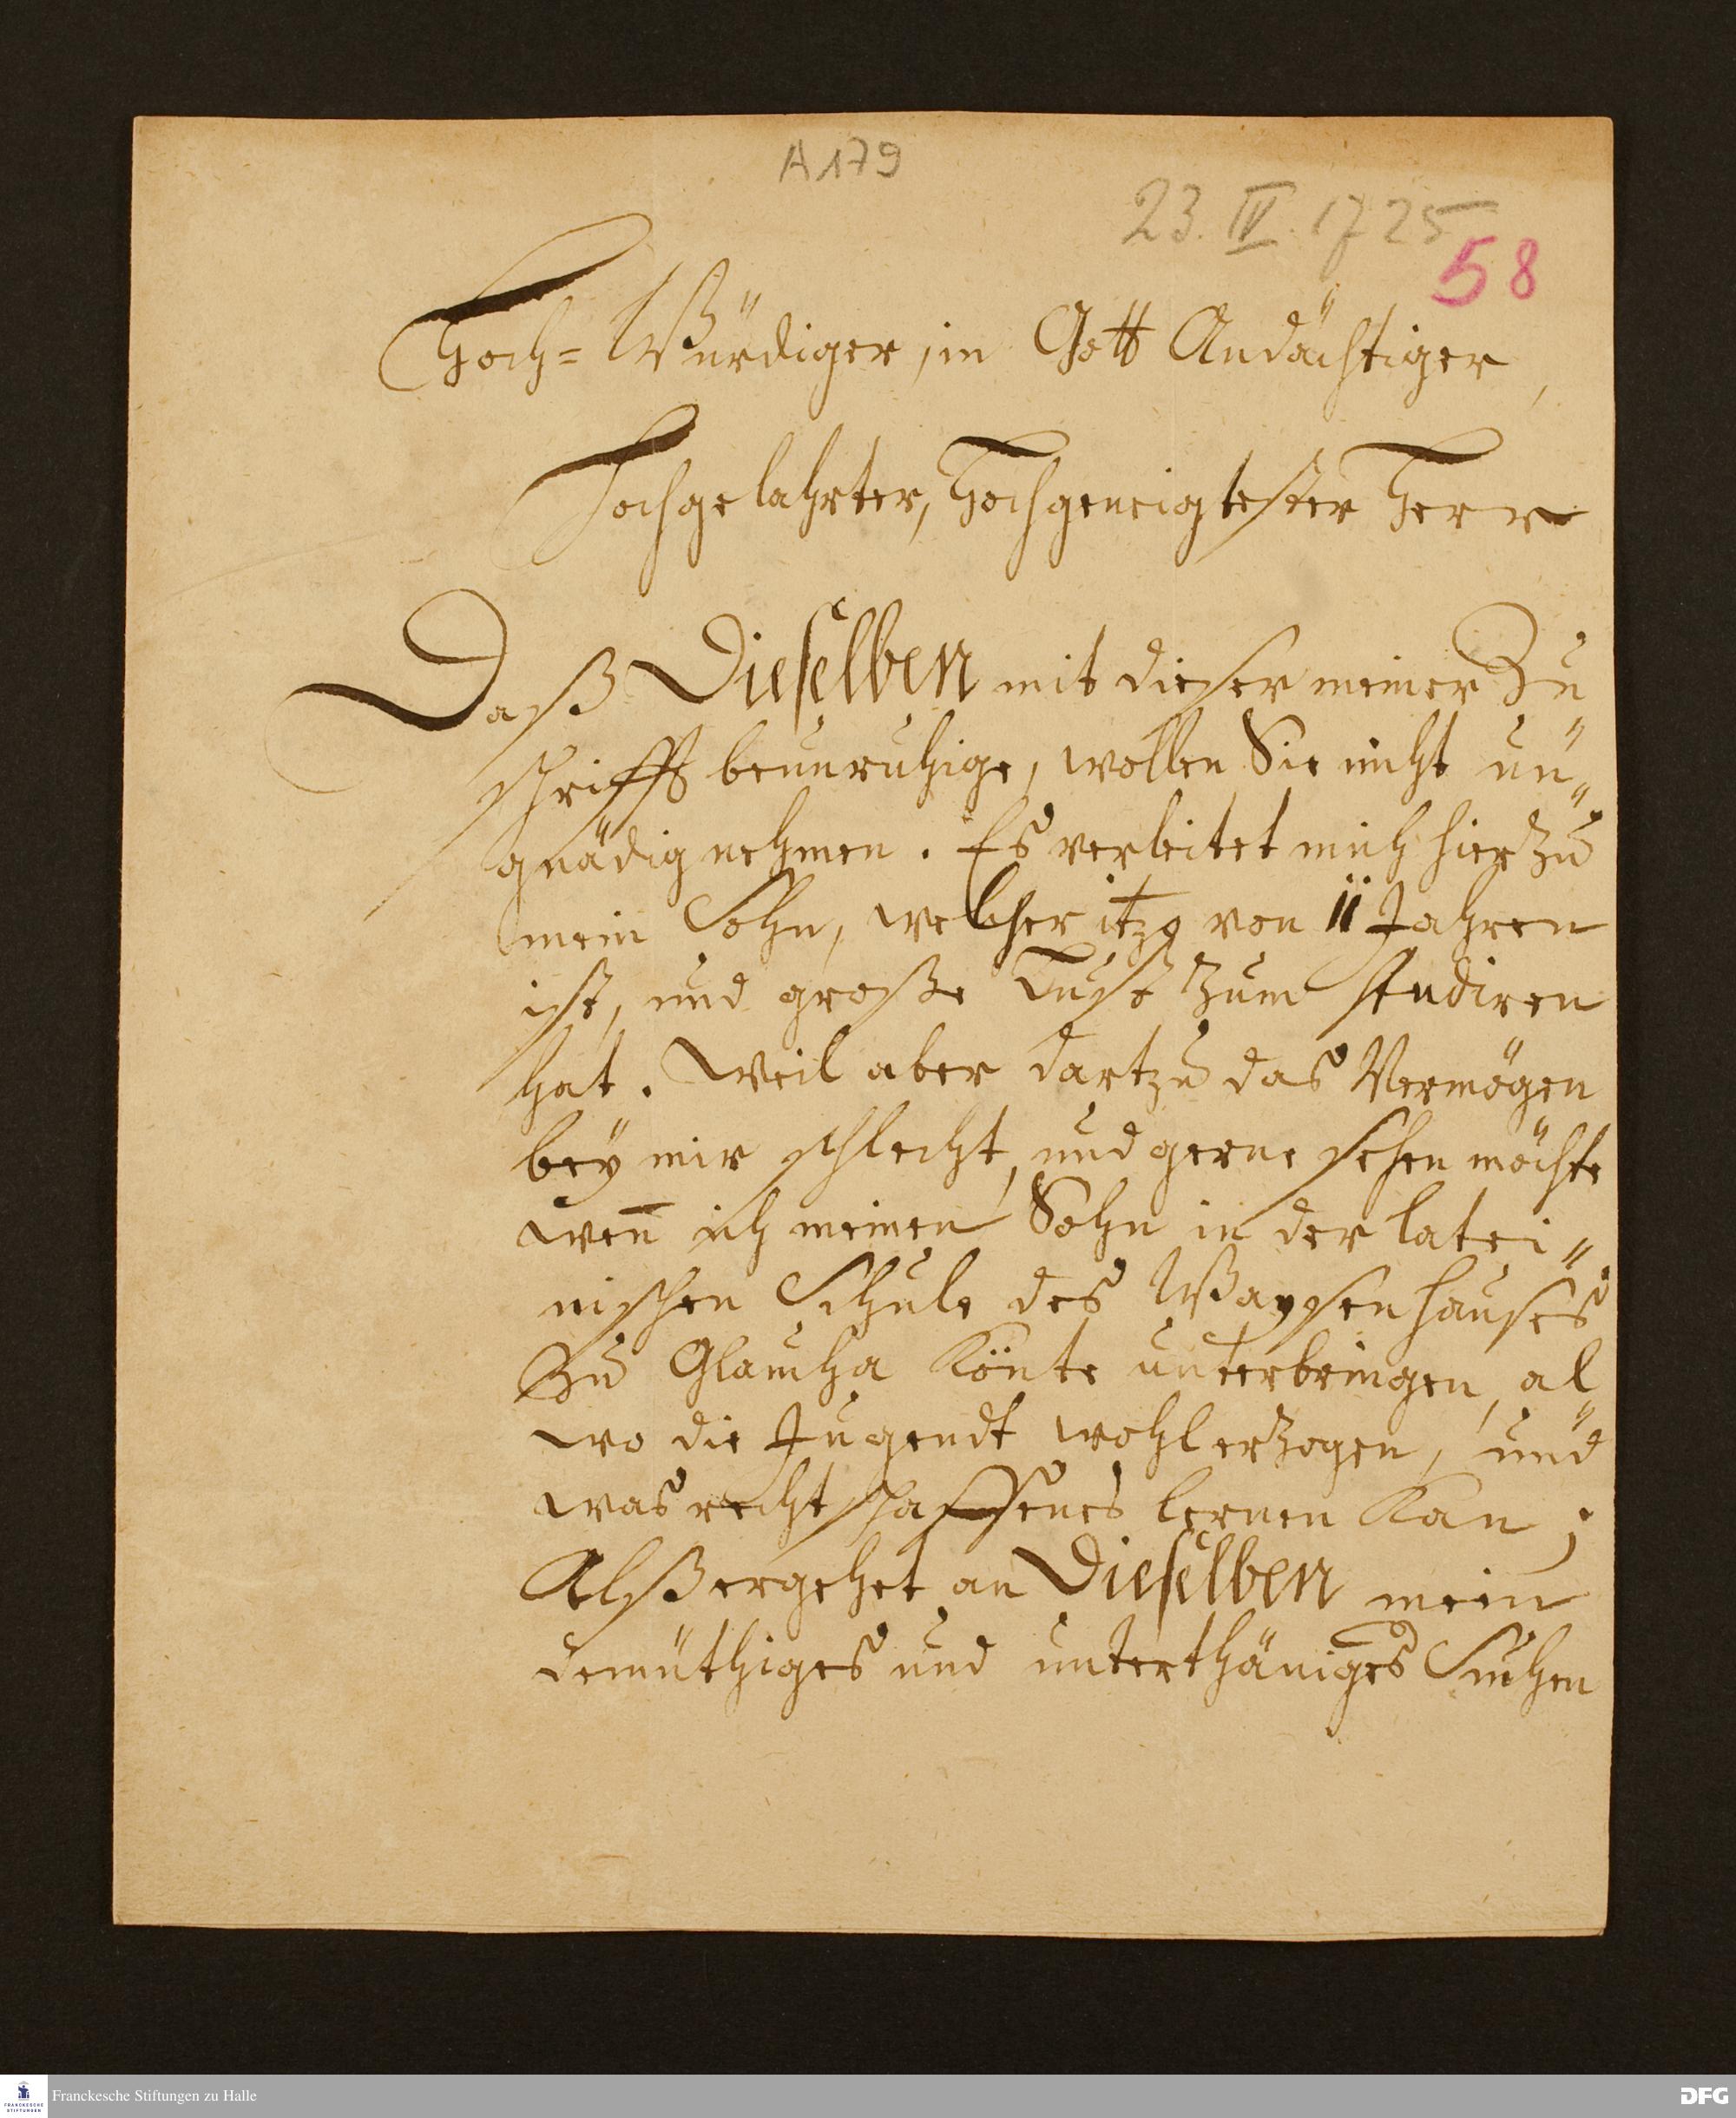 A 179
23. IV. 1725
58
Hoch-Würdiger, in Gott Andächtiger,
Hochgelahrter, Hochgeneigtester Herr
Daß Dieselben mit dieser meiner Zu
schrifft beunruhige, wollen Sie nicht un„
gnädig nehmen. Es verleitet mich hierzu
mein Sohn, welcher itzo von 11 Jahren
ist, und große Lust zum studiren
hat. Weil aber dartzu das Vermögen
bey mir schlecht, und gerne sehen möchte
weñ ich meinen Sohn in der latei„
nischen Schule des Waysenhauses
zu Glaucha könte unterbringen, al„
wo die Jugendt wohl erzogen, und
was rechtschaffenes lernen kan;
Alß ergehet an Dieselben mein
demüthiges und unterthäniges Suchen
Franckesche Stiftungen zu Halle
FRANCKESCHE
STIFTUNGEN
DFG